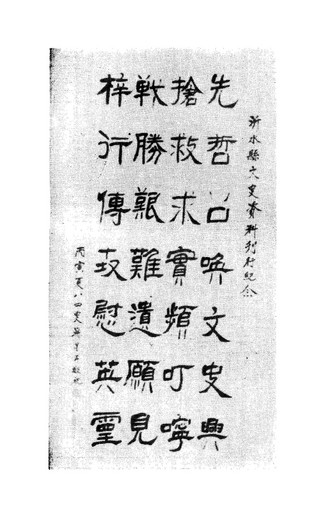 沂水縣文史資料刊行紀念
先哲召喚文史興
搶救求實頻叮嚀
戦勝艱難遺願見
梓行傳慰英靈
丙寅夏八四叟